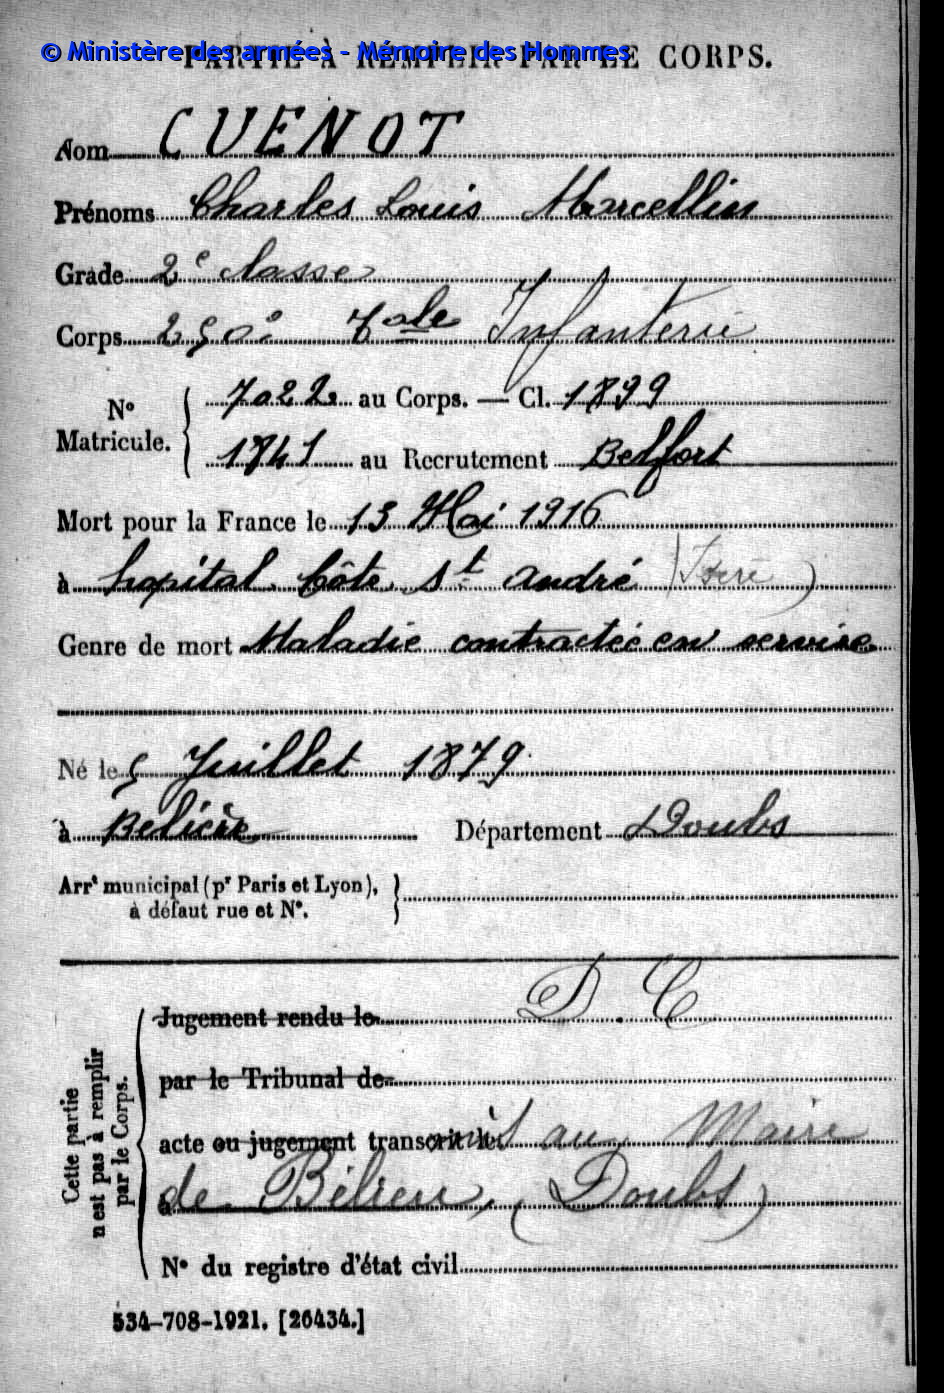 © Ministère des armées - Mémoire des Hommes
PARTIE À REMPLIR PAR LE CORPS.
Nom CUENOT
Prénoms Charles Louis Marcellin
Grade 2e classe
Corps 250e Tale Infanterie
No Matricule. 7022 au Corps. — Cl. 1899
1741 au Recrutement Belfort
Mort pour la France le 13 Mai 1916
à hopital Côte St André (Isère)
Genre de mort Maladie contractée en service
Né le 5 Juillet 1879
à Belière Département Doubs
Arrt municipal (pr Paris et Lyon),
à défaut rue et No.
Cette partie
n'est pas à remplir
par le Corps.
D. C
Jugement rendu le
par le Tribunal de
acte ou jugement transcrit le au Maire
à de Bélieu, (Doubs)
No du registre d'état civil
534-708-1921. [26434.]